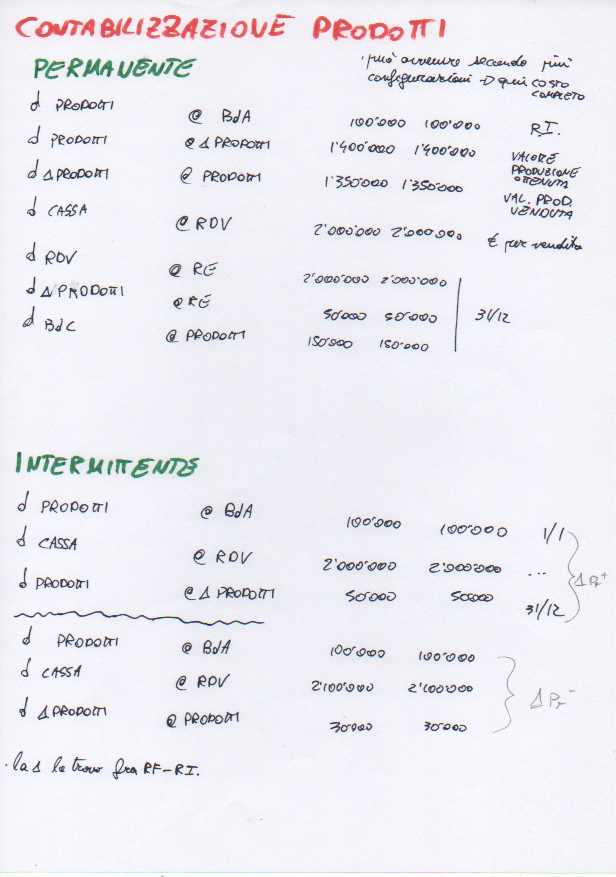 CONTABILIZZAZIONE PRODOTTI
PERMANENTE
· può avvenire secondo più
configurazioni → qui COSTO
COMPLETO
d PRODOTTI @ BdA 100'000 100'000 R.I.
d PRODOTTI @ Δ PRODOTTI 1'400'000 1'400'000 VALORE
PRODUZIONE
OTTENUTA
d Δ PRODOTTI @ PRODOTTI 1'350'000 1'350'000 VAL. PROD.
VENDUTA
d CASSA @ RDV 2'000'000 2'000'000 € per vendita
d RDV @ RE 2'000'000 2'000'000
d Δ PRODOTTI @ RE 50'000 50'000 31/12
d BdC @ PRODOTTI 150'000 150'000
INTERMITTENTE
d PRODOTTI @ BdA 100'000 100'000 1/1
d CASSA @ RDV 2'000'000 2'000'000 ...
d PRODOTTI @ Δ PRODOTTI 50'000 50'000 31/12
Δ Pr+
d PRODOTTI @ BdA 100'000 100'000
d CASSA @ RDV 2'100'000 2'100'000
Δ Pr-
d Δ PRODOTTI @ PRODOTTI 30'000 30'000
· la Δ la trovo fra RF-RI.